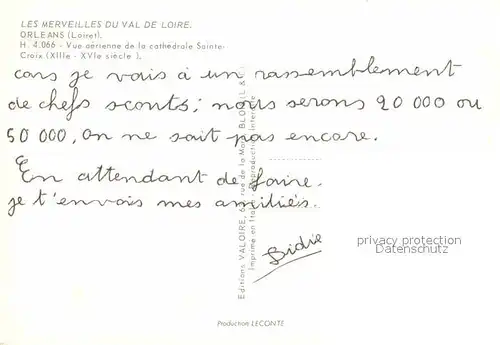 LES MERVEILLES DU VAL DE LOIRE.
ORLEANS (Loiret).
H. 4.066 - Vue aérienne de la cathédrale Sainte-
Croix (XIIIe - XVIe siècle).
cars je vais à un rassemblement
de chefs scouts; nous serons 20 000 ou
50 000, on ne sait pas encore.
En attendant de faire.
je t'envois mes amitiés.
Didie
privacy protection
Datenschutz
Editions VALOIRE, rue de la BLOIS (L & C)
Imprimé en Italie - Reproduction interdite
Production LECONTE